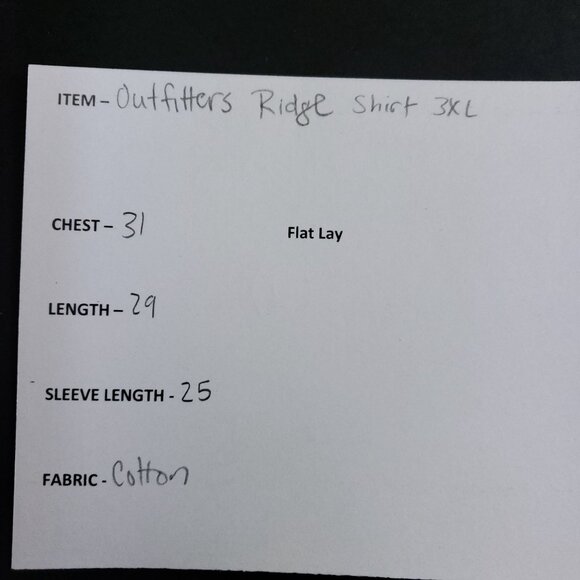 ITEM – Outfitters Ridge Shirt 3XL
CHEST – 31 Flat Lay
LENGTH – 29
SLEEVE LENGTH - 25
FABRIC - Cotton